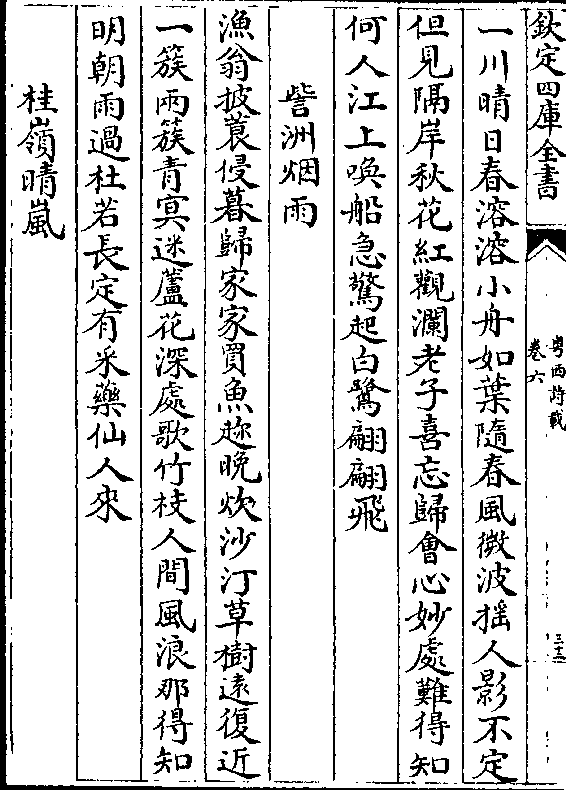 欽定四庫全書
粵西詩載
卷六
三十三
一川晴日春溶溶小舟如葉隨春風微波揺人影不定
但見隔岸秋花紅觀瀾老子喜忘歸會心妙處難得知
何人江上喚船急驚起白鷺翩翩飛
訾洲烟雨
漁翁披蓑侵暮歸家家買魚趂晚炊沙汀草樹遠復近
一簇兩簇青冥迷蘆花深處歌竹枝人間風浪那得知
明朝雨過杜若長定有采藥仙人來
桂嶺晴嵐